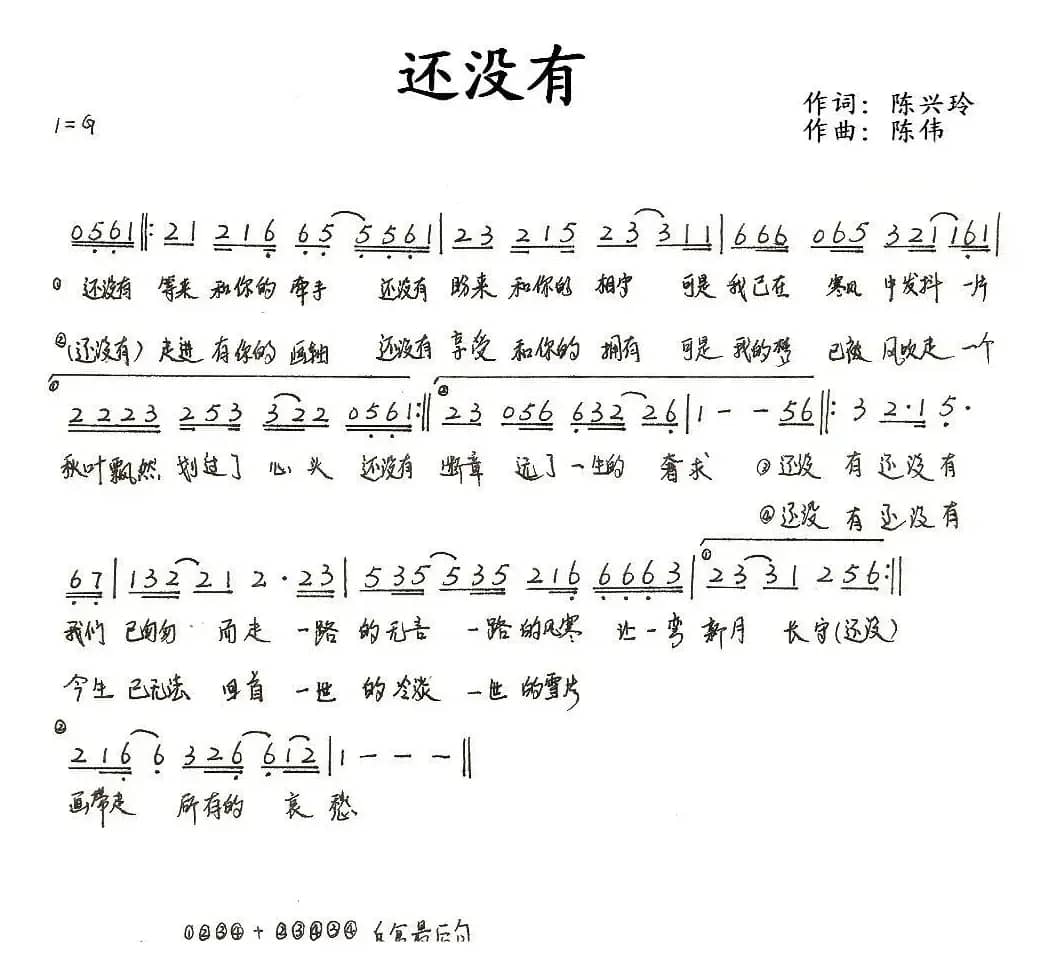 还没有
作词：陈兴玲
1=G
作曲：陈伟
0561‖:21 216 65 5561|23 215 23 311|666 065 321 161|
① 还没有 等来 和你的 牵手 还没有 盼来 和你的 相守 可是 我已在 寒风 中发抖 一片
②(还没有) 走进 有你的 画轴 还没有 享受 和你的 拥有 可是 我的梦 已被 风吹走 一个
① 2223 253 322 0561:‖② 23 056 632 26|1--56‖:3 2·1 5·
秋叶飘然 划过了 心头 还没有 断章 远了 一生的 奢求 ③还没 有 还没有
④还没 有 还没有
67|132 21 2·23|535 535 216 6663|① 23 31 256:‖
我们 已匆匆 而走 一路 的无言 一路 的风寒 让一弯 新月 长守(还没)
今生 已无法 回首 一世 的冷淡 一世 的雪片
② 216 6 326 612|1---‖
画带走 所有的 哀愁
①②③④+②③④③④ 反复最后句